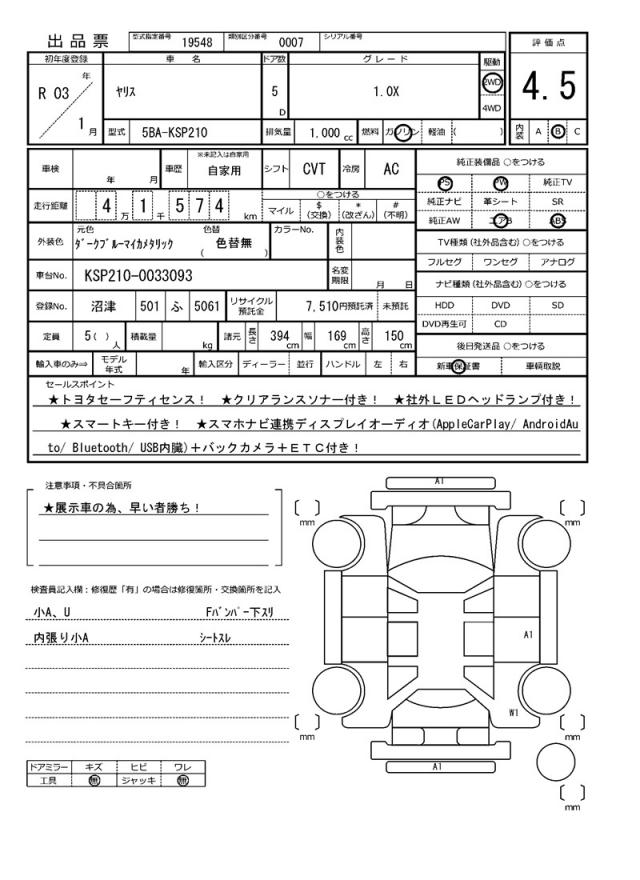 出品票 型式指定番号 19548 類別区分番号 0007 シリアル番号
評価点
4.5
内装 A B C
初年度登録 車名 ドア数 グレード 駆動
R 03 年 1 月 ヤリス 5 D 1.0X 2WD 4WD
型式 5BA-KSP210 排気量 1.000 cc 燃料 ガソリン 軽油 ( )
車検 年 月 車歴 ※未記入は自家用 自家用 シフト CVT 冷房 AC
走行距離 4 万 1 千 5 7 4 km ○をつける マイル $ (交換) * (改ざん) # (不明)
外装色 元色 ダークブルーマイカメタリック 色替 ( 色替無 ) カラーNo. 内装色
車台No. KSP210-0033093 名変期限 月 日
登録No. 沼津 501 ふ 5061 リサイクル預託金 7,510円預託済 未預託
定員 5( ) 人 積載量 kg 諸元 長さ 394 cm 幅 169 cm 高さ 150 cm
輸入車のみ⇒ モデル年式 年 輸入区分 ディーラー 並行 ハンドル 左 右
純正装備品 ○をつける
PS PW 純正TV
純正ナビ 革シート SR
純正AW エアB ABS
TV種類(社外品含む)○をつける
フルセグ ワンセグ アナログ
ナビ種類(社外品含む)○をつける
HDD DVD SD
DVD再生可 CD
後日発送品 ○をつける
新車保証書 車輌取説
セールスポイント
★トヨタセーフティセンス! ★クリアランスソナー付き! ★社外LEDヘッドランプ付き!
★スマートキー付き! ★スマホナビ連携ディスプレイオーディオ(AppleCarPlay/ AndroidAu
to/ Bluetooth/ USB内臓)+バックカメラ+ETC付き!
注意事項・不具合箇所
★展示車の為、早い者勝ち!
検査員記入欄:修復歴「有」の場合は修復箇所・交換箇所を記入
小A、U Fバンパー下スリ
内張り小A シートスレ
ドアミラー キズ ヒビ ワレ
工具 無 ジャッキ 無
A1
[ ] mm [ ] mm
A1
W1
[ ] mm [ ] mm
A1
[ ] mm